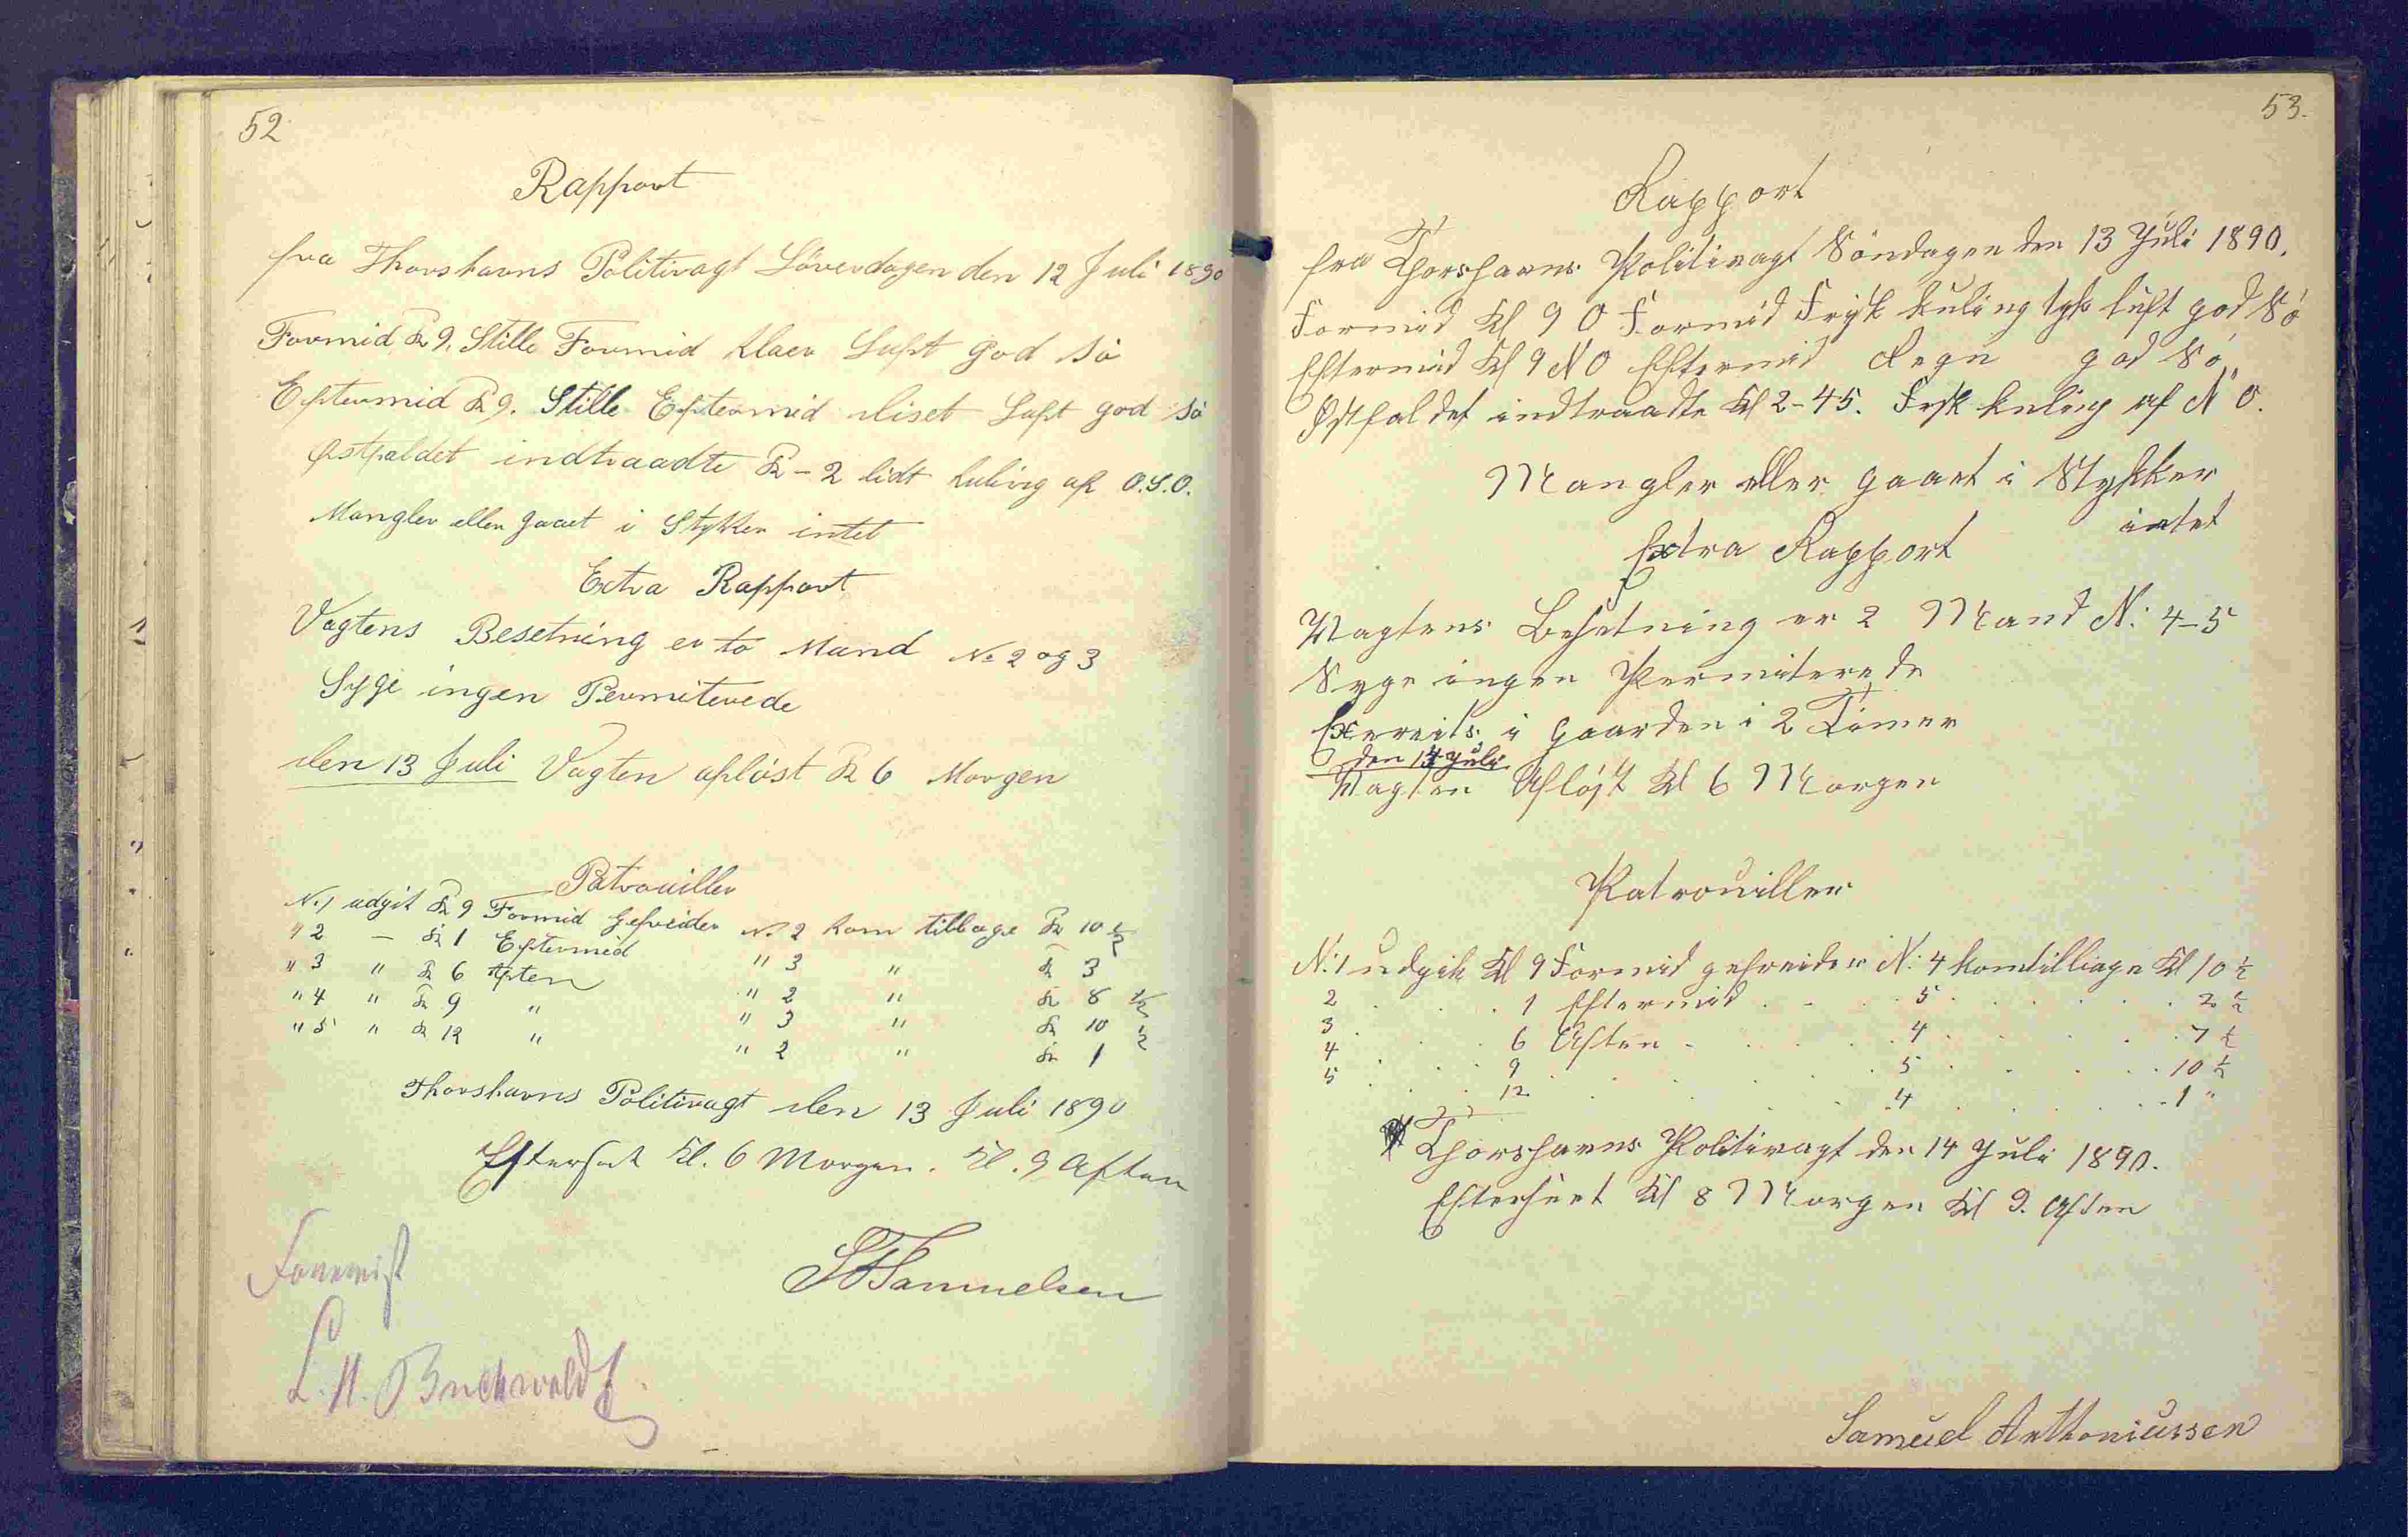 52
Rapport
fra Thorshavns Politivagt Löverdagen den 12 Juli 1890
Formid Kl 9. Stille Formid klaer Luft god Sö
Eftermid Kl 9. Stille Eftermid diset Luft god Sö
Østfaldet indtraadte Kl - 2 lidt kuling af O.S.O.
Mangler eller gaaet i Stykker intet
Extra Rapport
Vagtens Besetning er to Mand No 2 og 3
Syge ingen Permiterede
den 13 Juli Vagten aflöst Kl 6 Morgen
Patrouiller
No 1 udgik Kl 9 Formid Gefreider No 2 kom tilbage Kl 10 ½
" 2 - Kl 1 Eftermid " 3 " Kl 3
" 3 " Kl 6 Aften " 2 " Kl 8 ½
" 4 " Kl 9 " " 3 " Kl 10 ½
" 5 " Kl 12 " " 2 " Kl 1
Thorshavns Politivagt den 13 Juli 1890
Eftersat Kl. 6 Morgen. Kl. 9 Aften
Samuelsen
Forevist
Buchwaldt
53.
Rapport
fra Thorshavns Politivagt Söndagen den 13 Juli 1890.
Formid Kl 9 O Formid Frisk kuling tyk luft god Sö
Eftermid Kl 9 NO Eftermid Regn god Sö
Østfaldet indtraadte Kl 2-45. Frsk kuling af N O.
Mangler eller gaaet i Stykker
intet
Extra Rapport
Vagtens Besetning er 2 Mand N: 4-5
Syge ingen Permiterede
Exersits i gaarden i 2 Timer
den 14 Juli
Vagten Aflöst Kl 6 Morgen
Patrouiller
N: 1 udgik Kl 9 Formid gefreider N: 4 kom tilbage Kl 10 ½
2 . . . 1 Eftermid . . . 5 . . . 2 ½
3 . . . 6 Aften . . . 4 . . . 7 ½
4 . . . 9 . . . 5 . . . 10 ½
5 . . . 12 . . . 4 . . . 1 "
Thorshavns Politivagt den 14 Juli 1890.
Kl 8 Morgen Kl 9. Aften
Samuel Anthoniussen